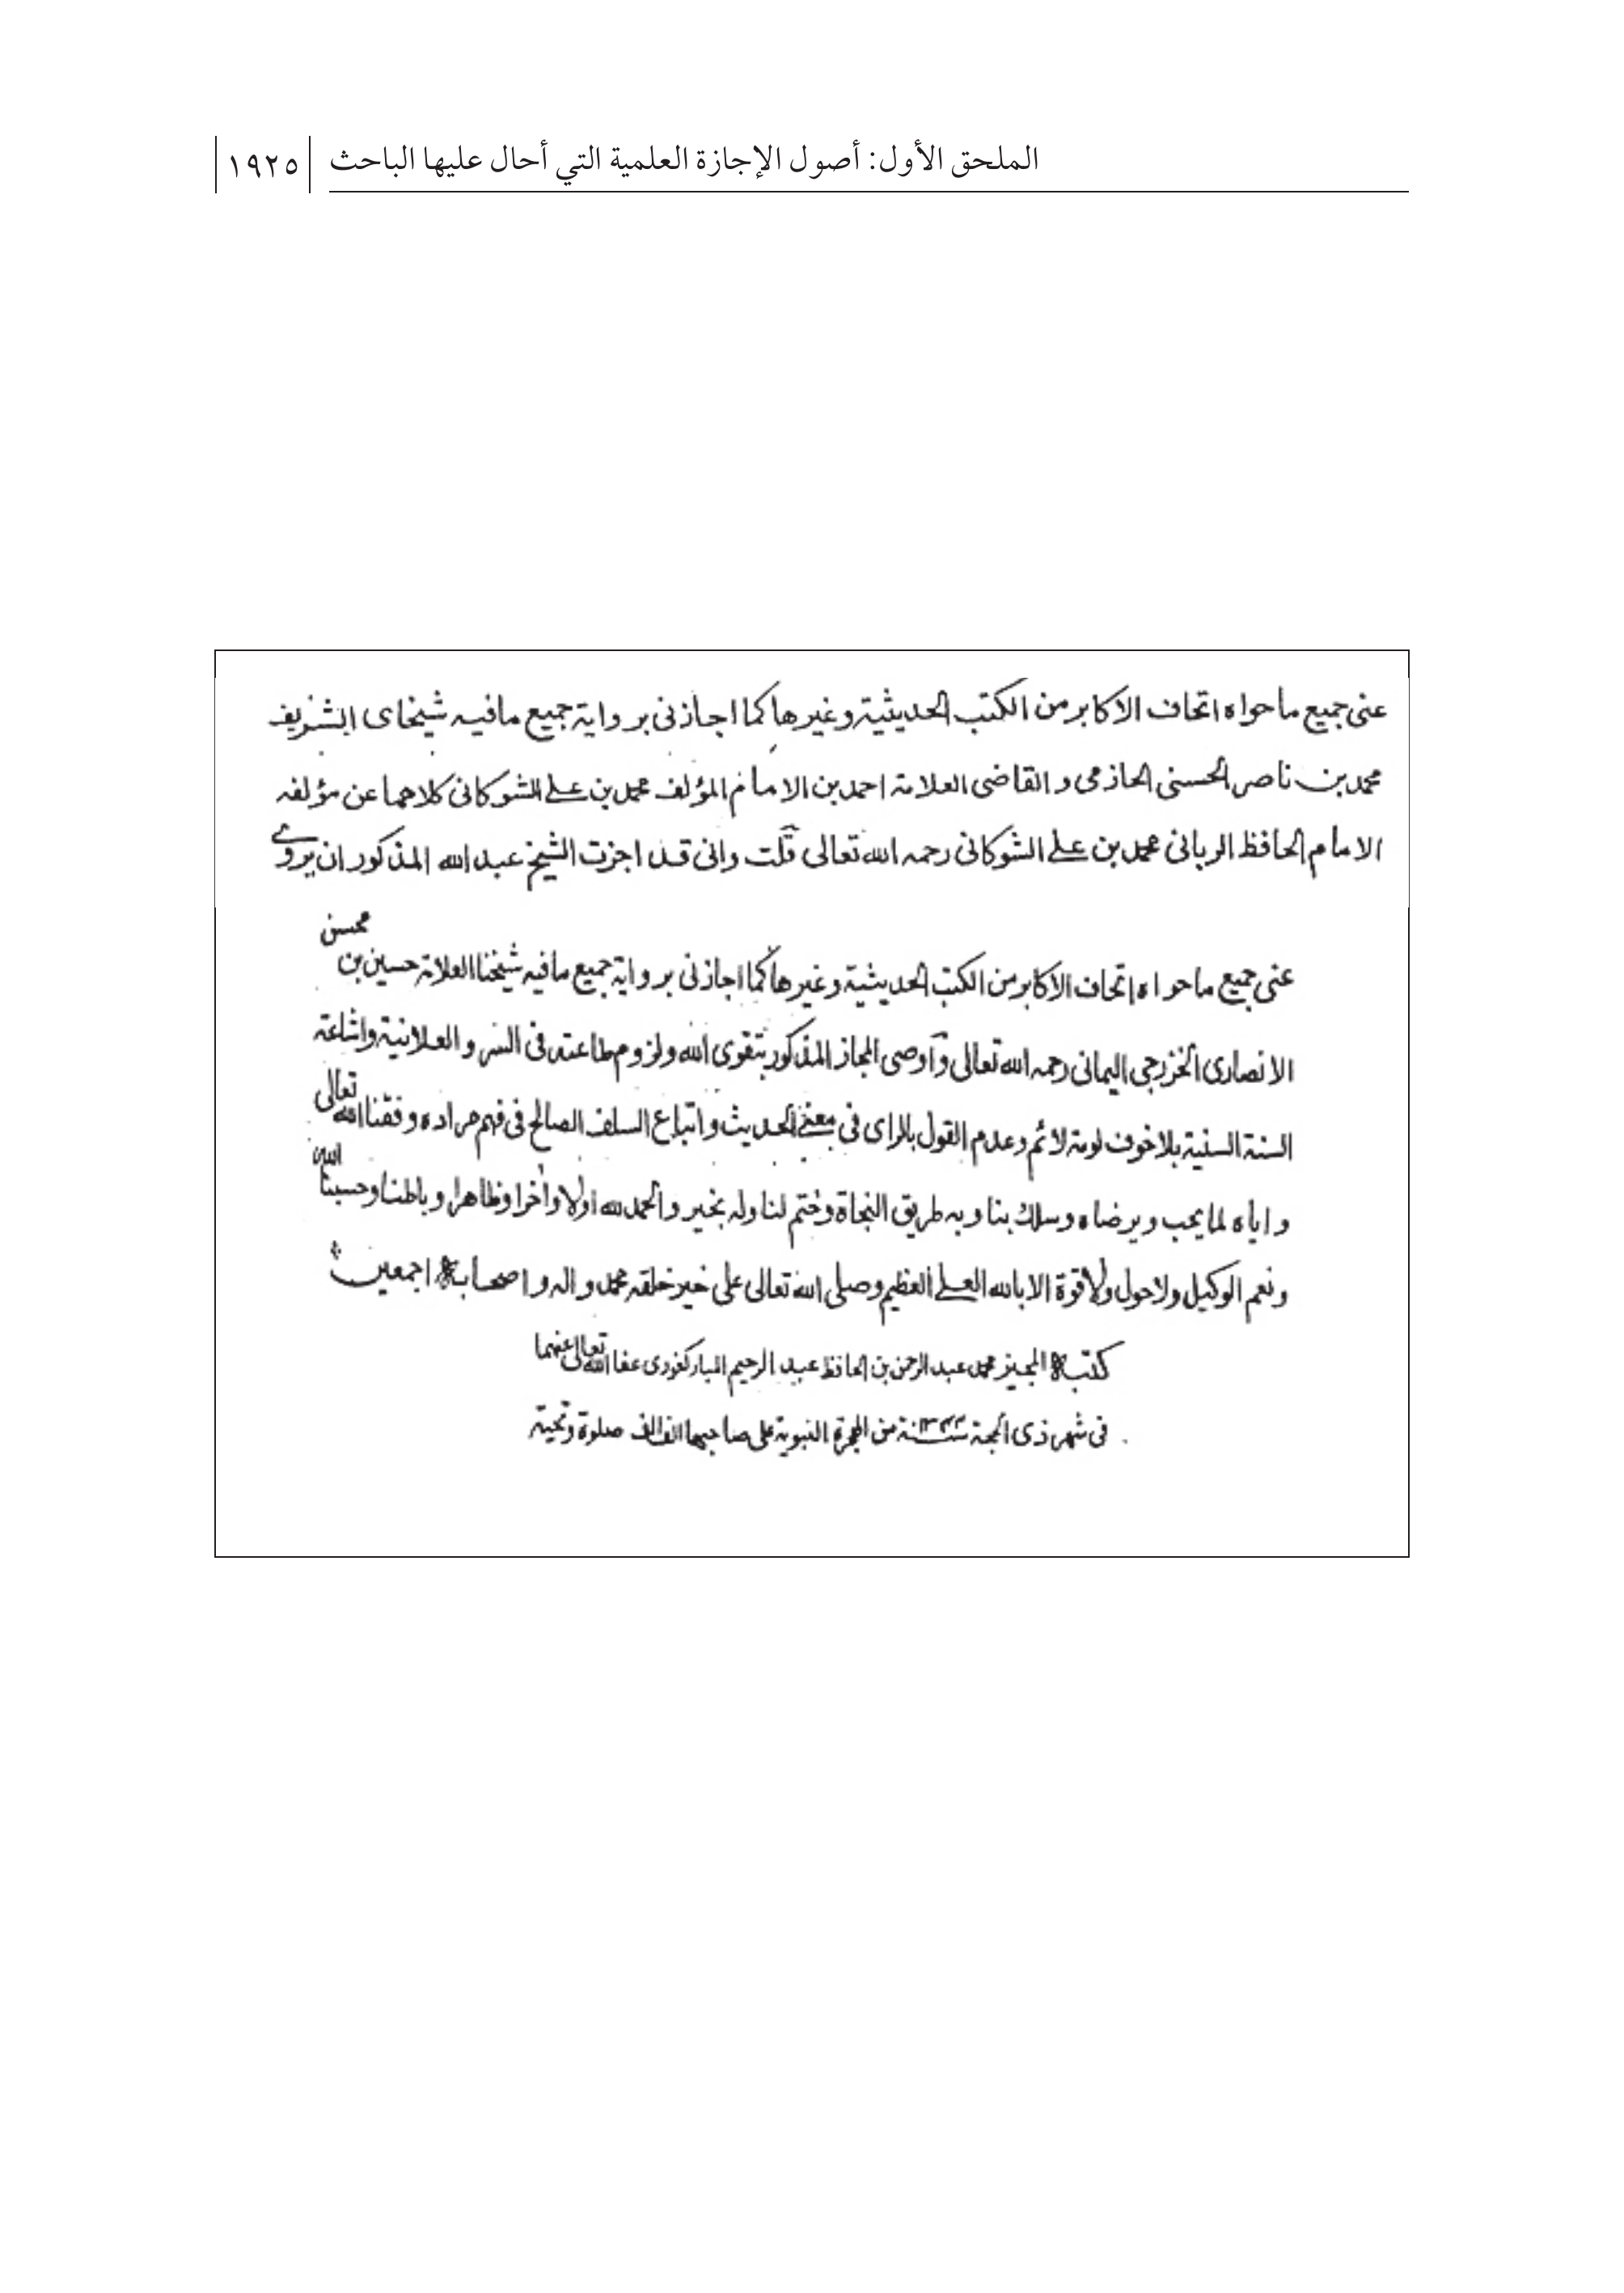 الملحق الأول: أصول الإجازة العلمية التي أحال عليها الباحث ١٩٢٥
عنى جميع ما حواه اتحاف الاكابر من الكتب الحديثية وغيرها كما اجازنى برواية جميع مافيه شيخاى الشريف
محمد بن ناصر الحسنى الحازمى و القاضى العلامة احمد بن الامام المؤلف محمد بن على الشوكانى كلاهما عن مؤلفه
الامام الحافظ الربانى محمد بن على الشوكانى رحمه الله تعالى قلت وانى قد اجزت الشيخ عبد الله المذكور ان يروے
عنى جميع ما حواه اتحاف الاكابر من الكتب الحديثية وغيرها كما اجازنى برواية جميع مافيه شيخنا العلامة حسين بن محسن
الانصارى الخزرجى اليمانى رحمه الله تعالى وأوصى المجاز المذكور بتقوى الله ولزوم طاعته فى السر و العلانية واشاعة
السنة السنية بلاخوف لومة لائم وعدم القول بالراى فى معنى الحديث واتباع السلف الصالح فى فهم مراده وفقنا الله تعالى
واياه لما يحب ويرضاه وسلك بنا وبه طريق النجاة وختم لنا وله بخير والحمد لله اولا وأخرا وظاهرا وباطنا وحسبنا الله
ونعم الوكيل ولاحول ولاقوة الا بالله العلى العظيم وصلى الله تعالى على خير خلقه محمد واله واصحابه اجمعين
كتبه المجيز محمد عبد الرحمن بن الحافظ عبد الرحيم المباركفورى عفا الله تعالى عنهما
فى شهر ذى الحجة سنة من الهجرة النبوية على صاحبها الف الف صلوة وتحية